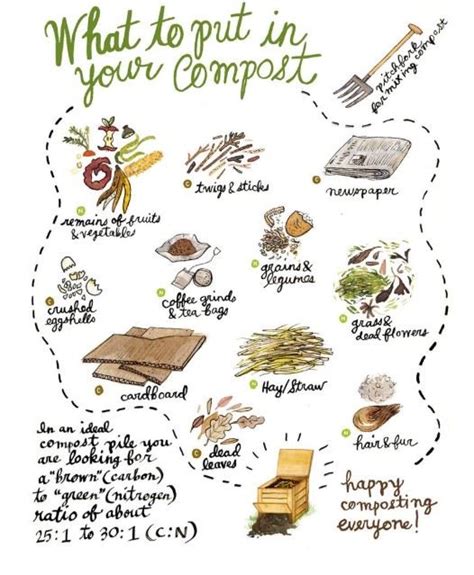 What to put in
your Compost
pitchfork
for mixing compost
N
remains of fruits
& vegetables
C
twigs & sticks
C
newspaper
C
crushed
eggshells
N
coffee grinds
& tea bags
N
grains &
legumes
N
grass &
dead flowers
C
cardboard
N
Hay/Straw
C
dead
leaves
N
hair & fur
In an ideal
compost pile you
are looking for
a "brown" (carbon)
to "green" (nitrogen)
ratio of about
25:1 to 30:1 (C:N)
happy
composting
everyone!